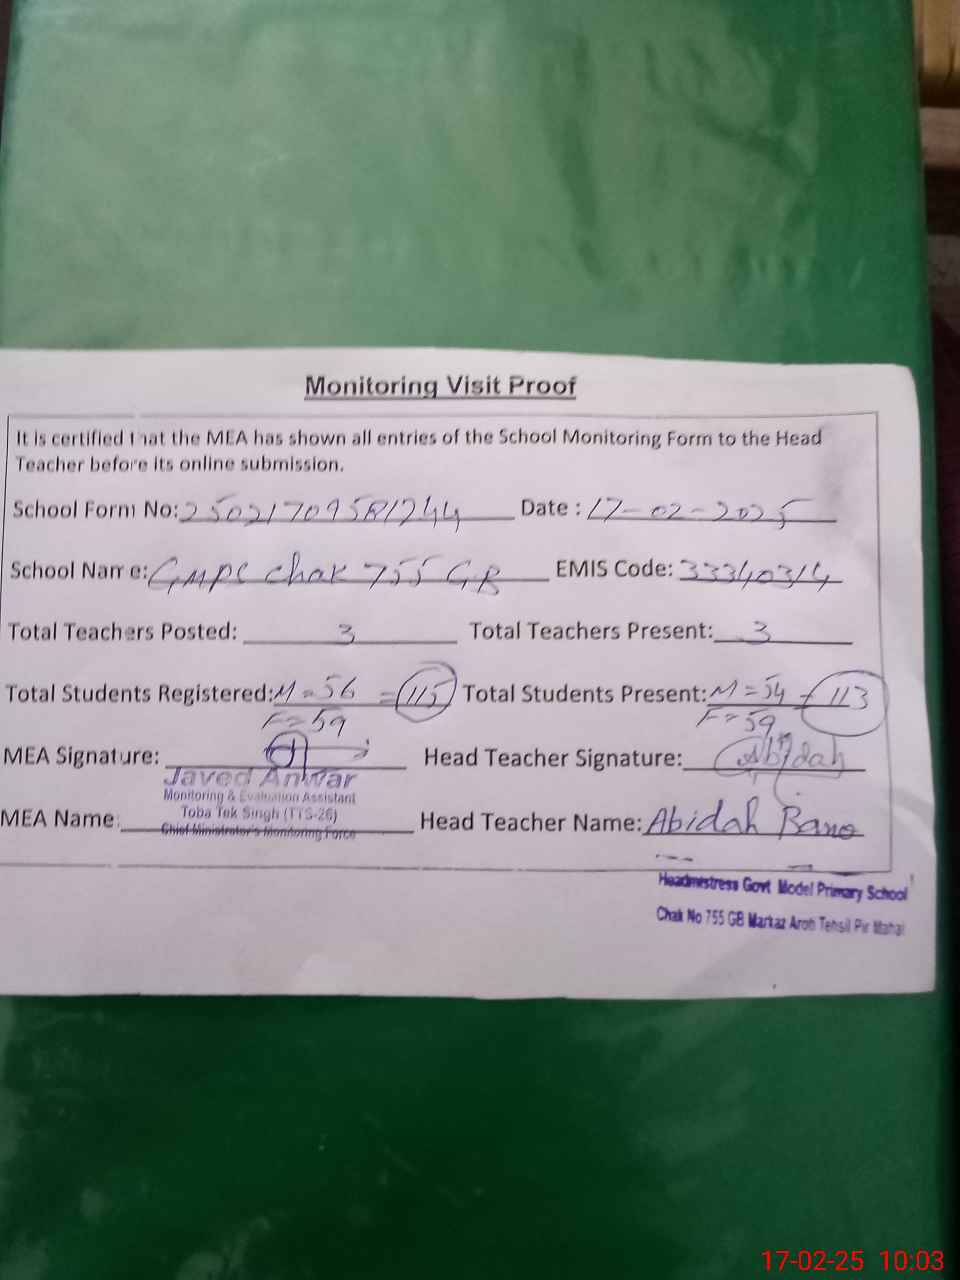 Monitoring Visit Proof
It is certified that the MEA has shown all entries of the School Monitoring Form to the Head
Teacher before its online submission.
School Form No: 25021709581244 Date : 17-02-2025
School Name: GMPS Chak 755 GB EMIS Code: 33340314
Total Teachers Posted: 3 Total Teachers Present: 3
Total Students Registered: M=56 = 115 Total Students Present: M=54 = 113
F=59 F=59
MEA Signature: Head Teacher Signature: Abidah
Javed Anwar
Monitoring & Evaluation Assistant
Toba Tek Singh (TTS-26)
Chief Minister's Monitoring Force
MEA Name: Head Teacher Name: Abidah Bano
Headmistress Govt Model Primary School
Chak No 755 GB Markaz Aroti Tehsil Pir Mahal
17-02-25 10:03